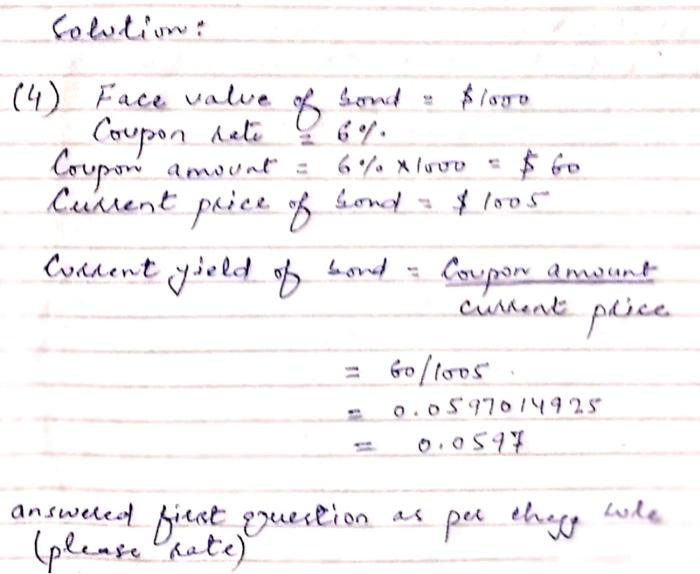 Solution:
(4) Face value of bond = $1000
Coupon rate = 6%.
Coupon amount = 6% x 1000 = $ 60
Current price of bond = $ 1005
Current yield of bond = Coupon amount
current price
= 60/1005.
= 0.0597014925
= 0.0597
answered first question as per chegg rule
(please rate)